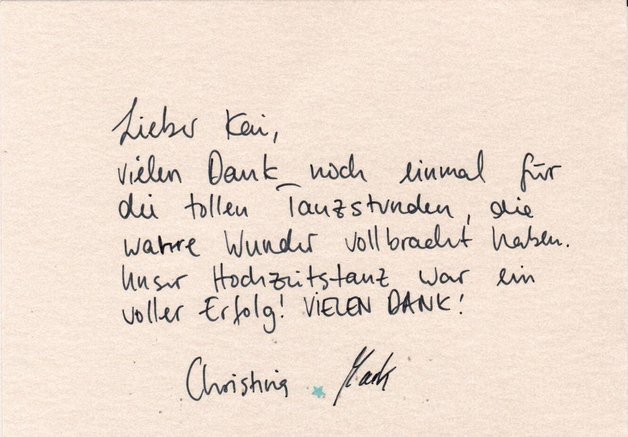 Lieber Kai,
vielen Dank noch einmal für
die tollen Tanzstunden, die
wahre Wunder vollbracht haben.
Unser Hochzeitstanz war ein
voller Erfolg! VIELEN DANK!
Christina Mark